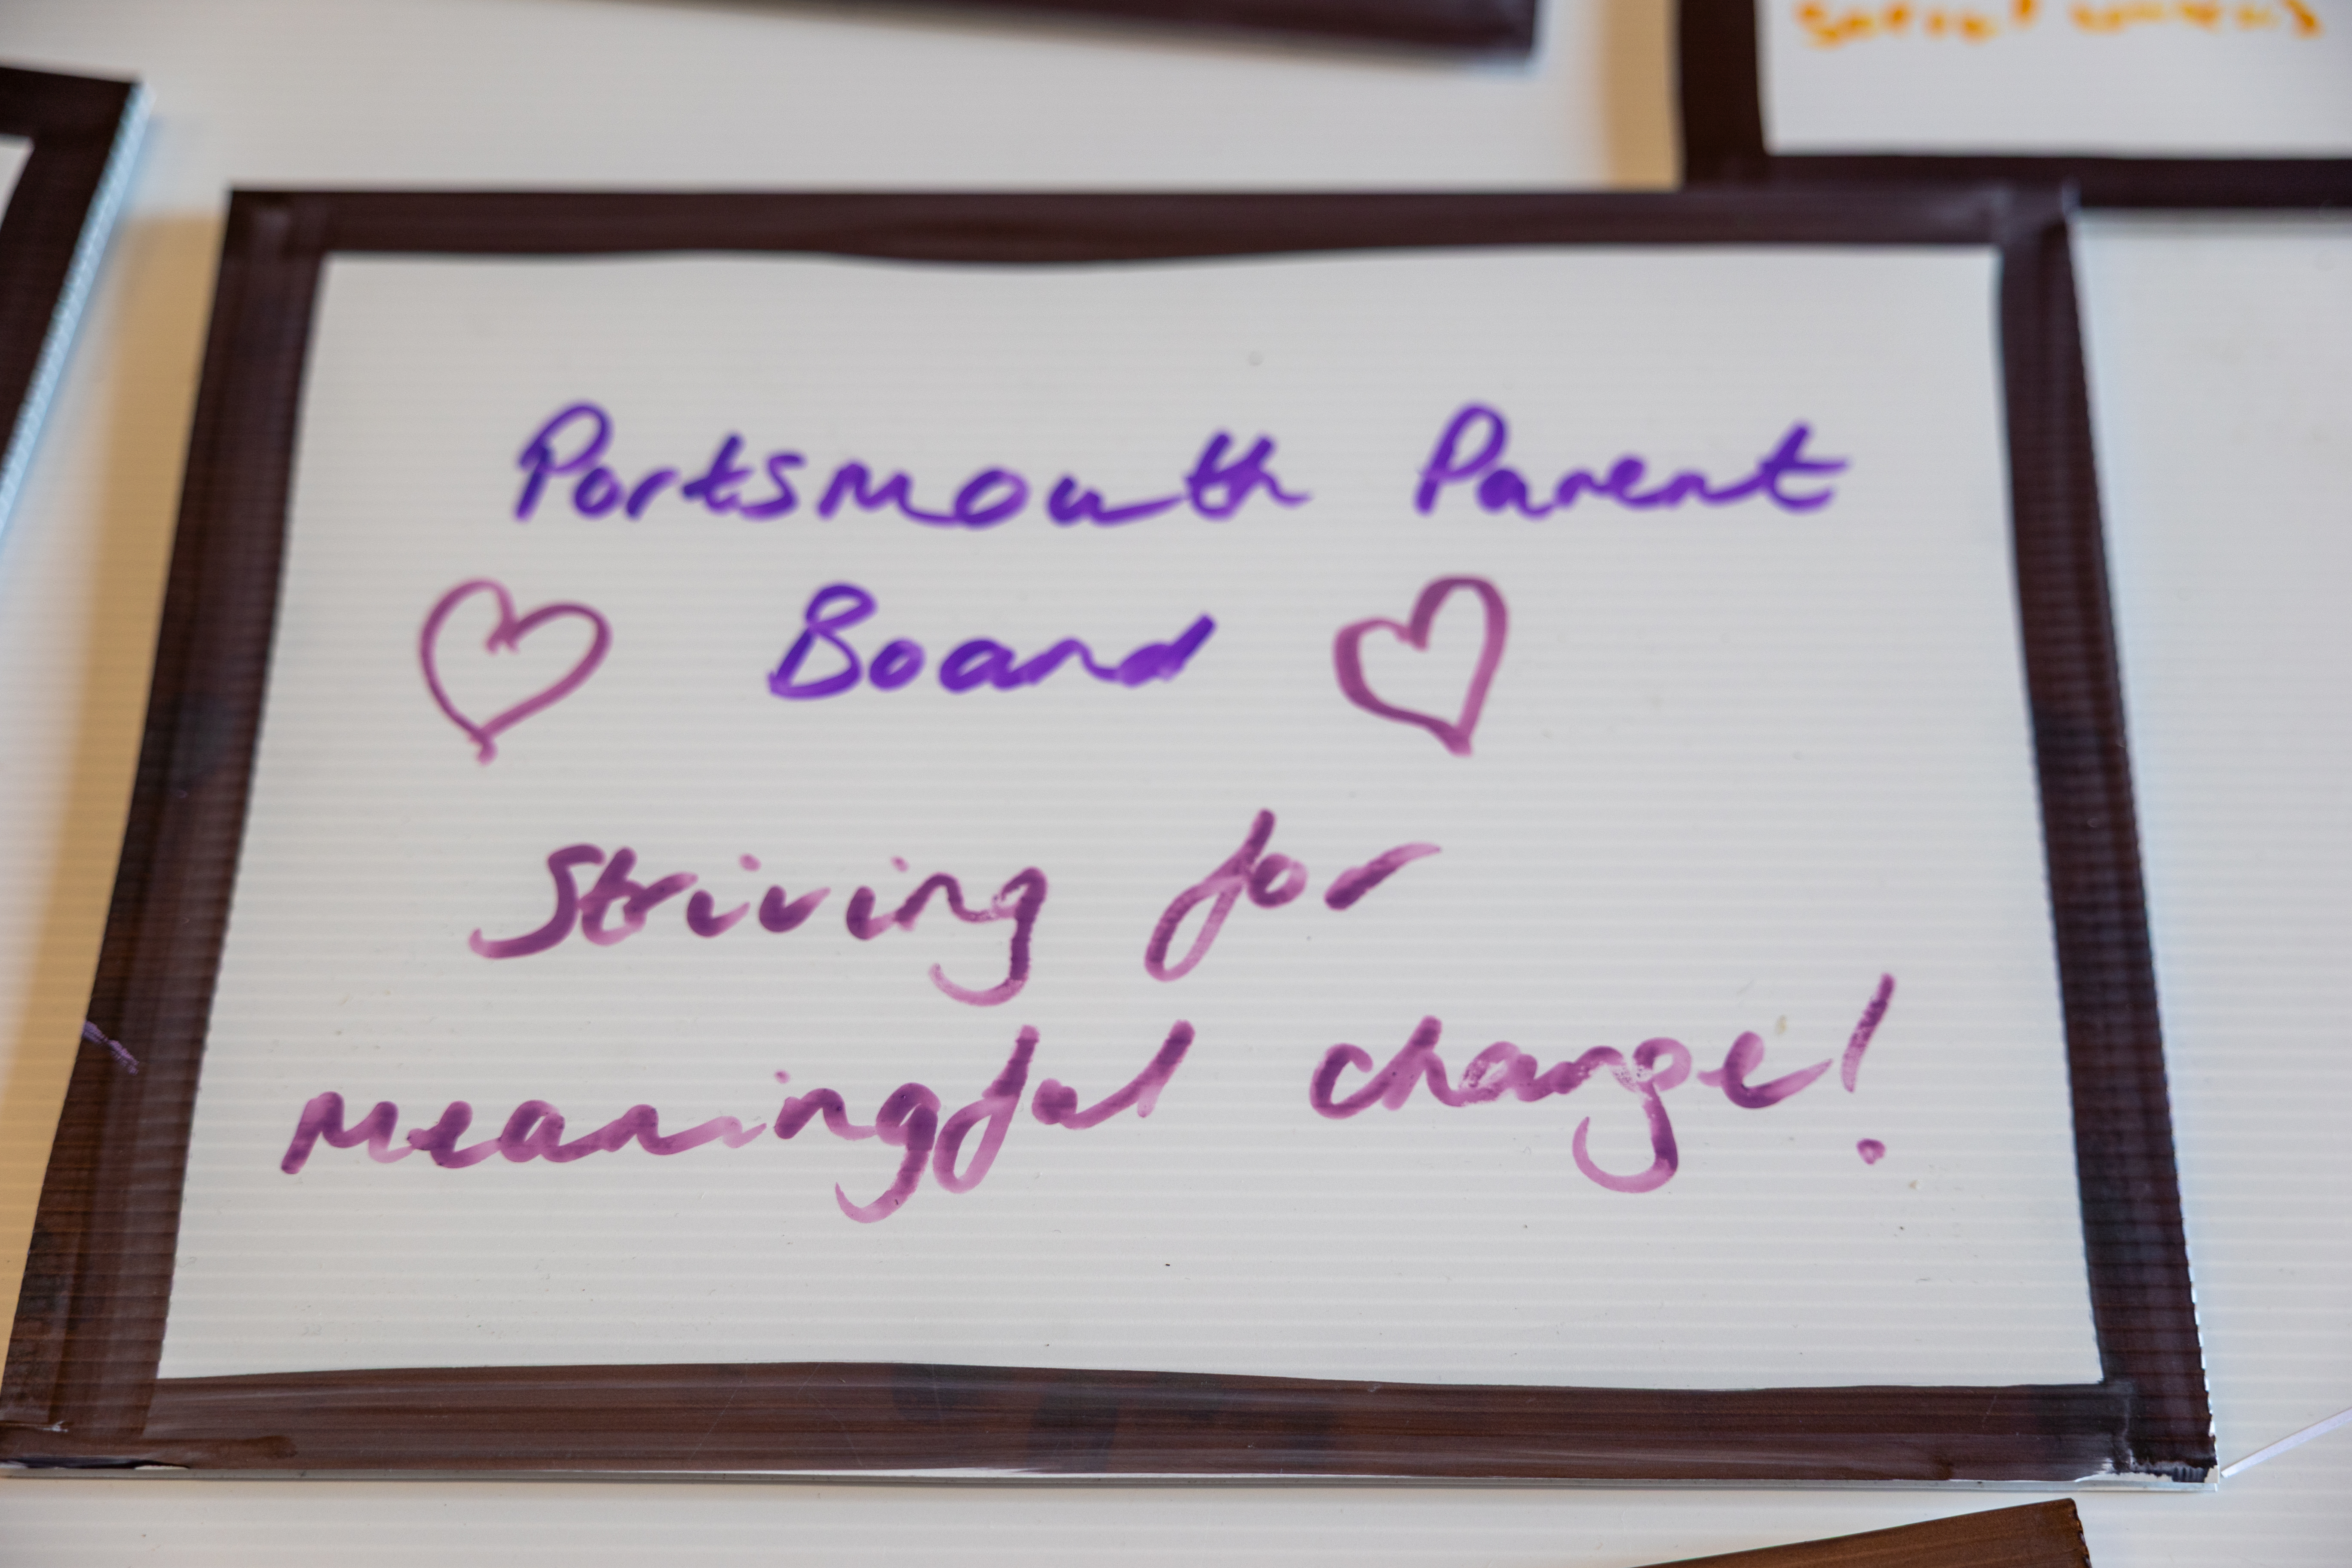 Portsmouth Parent
Board
Striving for
meaningful change!